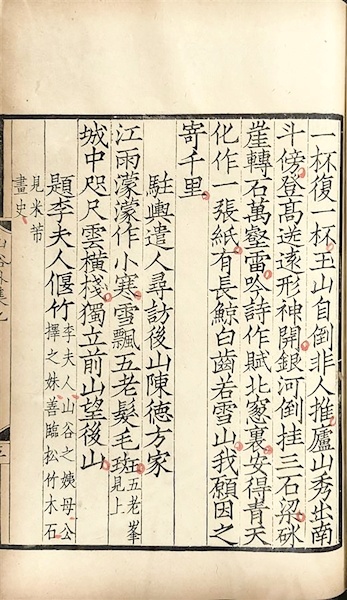 一杯復一杯玉山自倒非人推廬山秀出南
斗傍登高送遠形神開銀河倒挂三石梁砯
崖轉石萬壑雷吟詩作賦北窻裏安得青天
化作一張紙有長鯨白齒若雪山我願因之
寄千里
駐輿遣人尋訪後山陳德方家
江雨濛濛作小寒雪飄五老髮毛斑五老峯見上
城中咫尺雲橫棧獨立前山望後山
題李夫人偃竹李夫人山谷之姨母公擇之妹善臨松竹木石
見米芾畫史